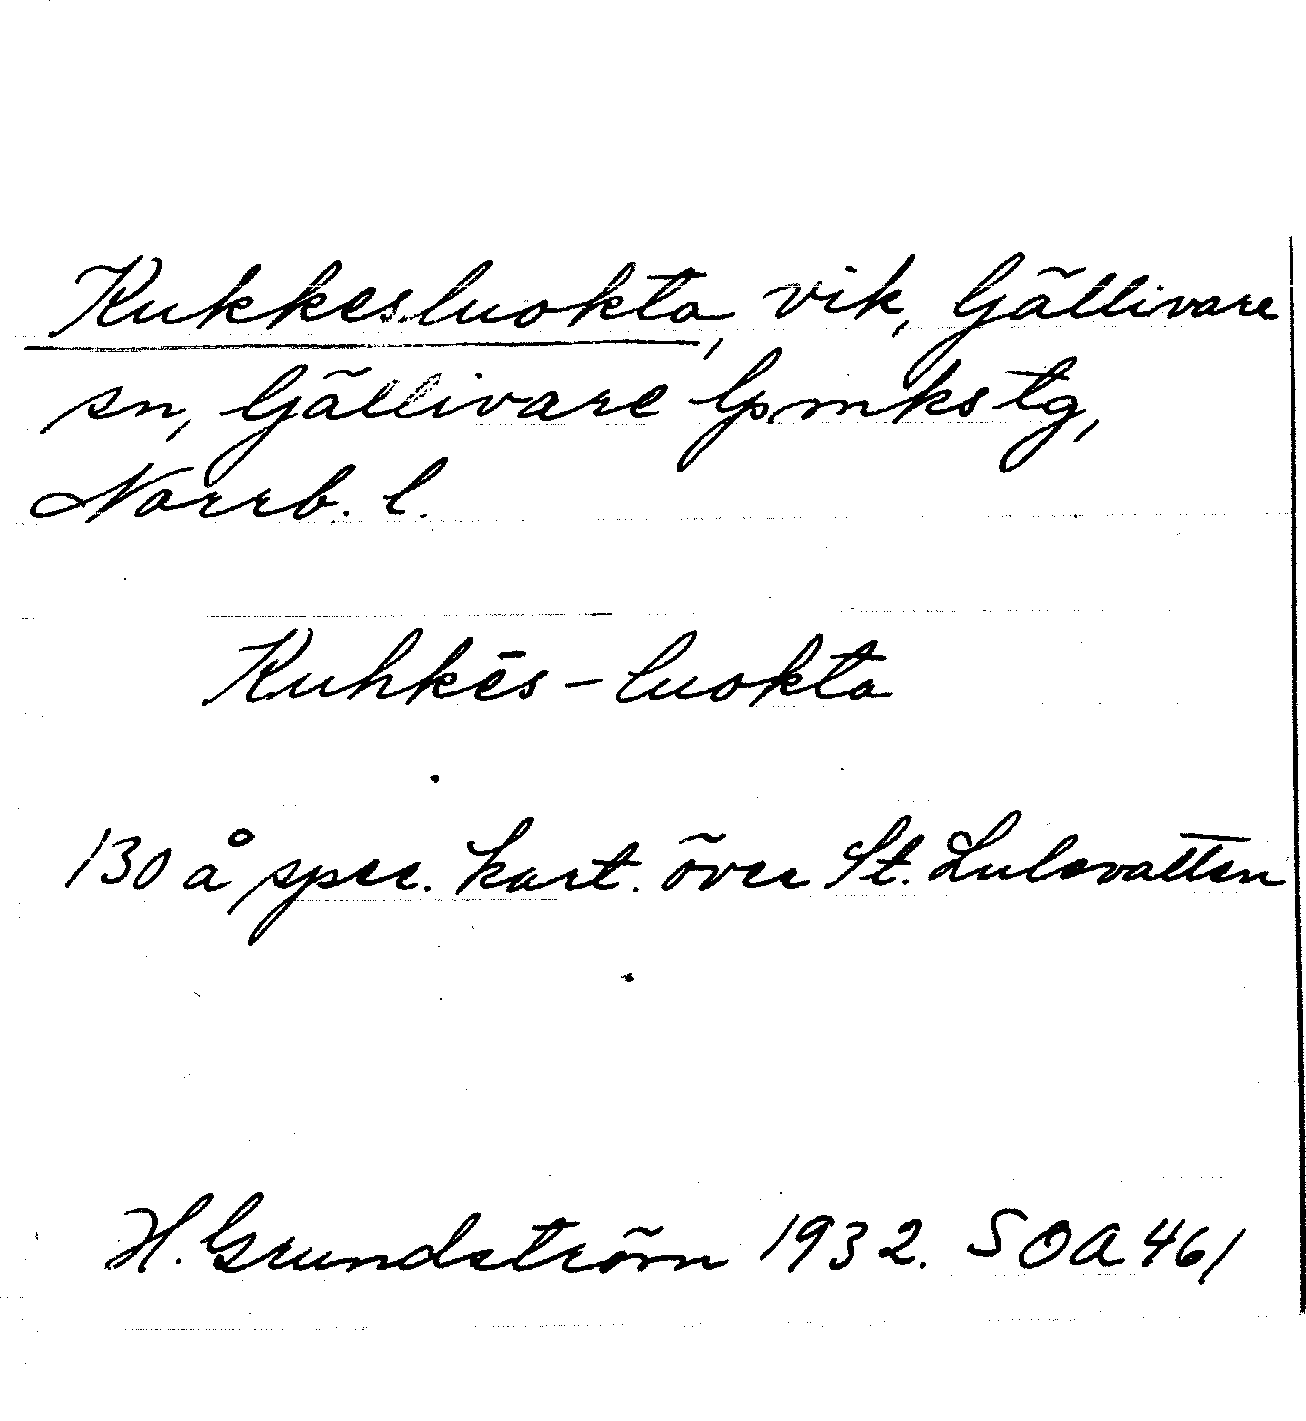 Kukkesluokta, vik, Gällivare
sn, Gällivare lpmks tg,
Norrb. l.
Kuhkēs-luokta
130 å spec. kart. över St. Lulevatten
H. Grundström 1932. SOA 461